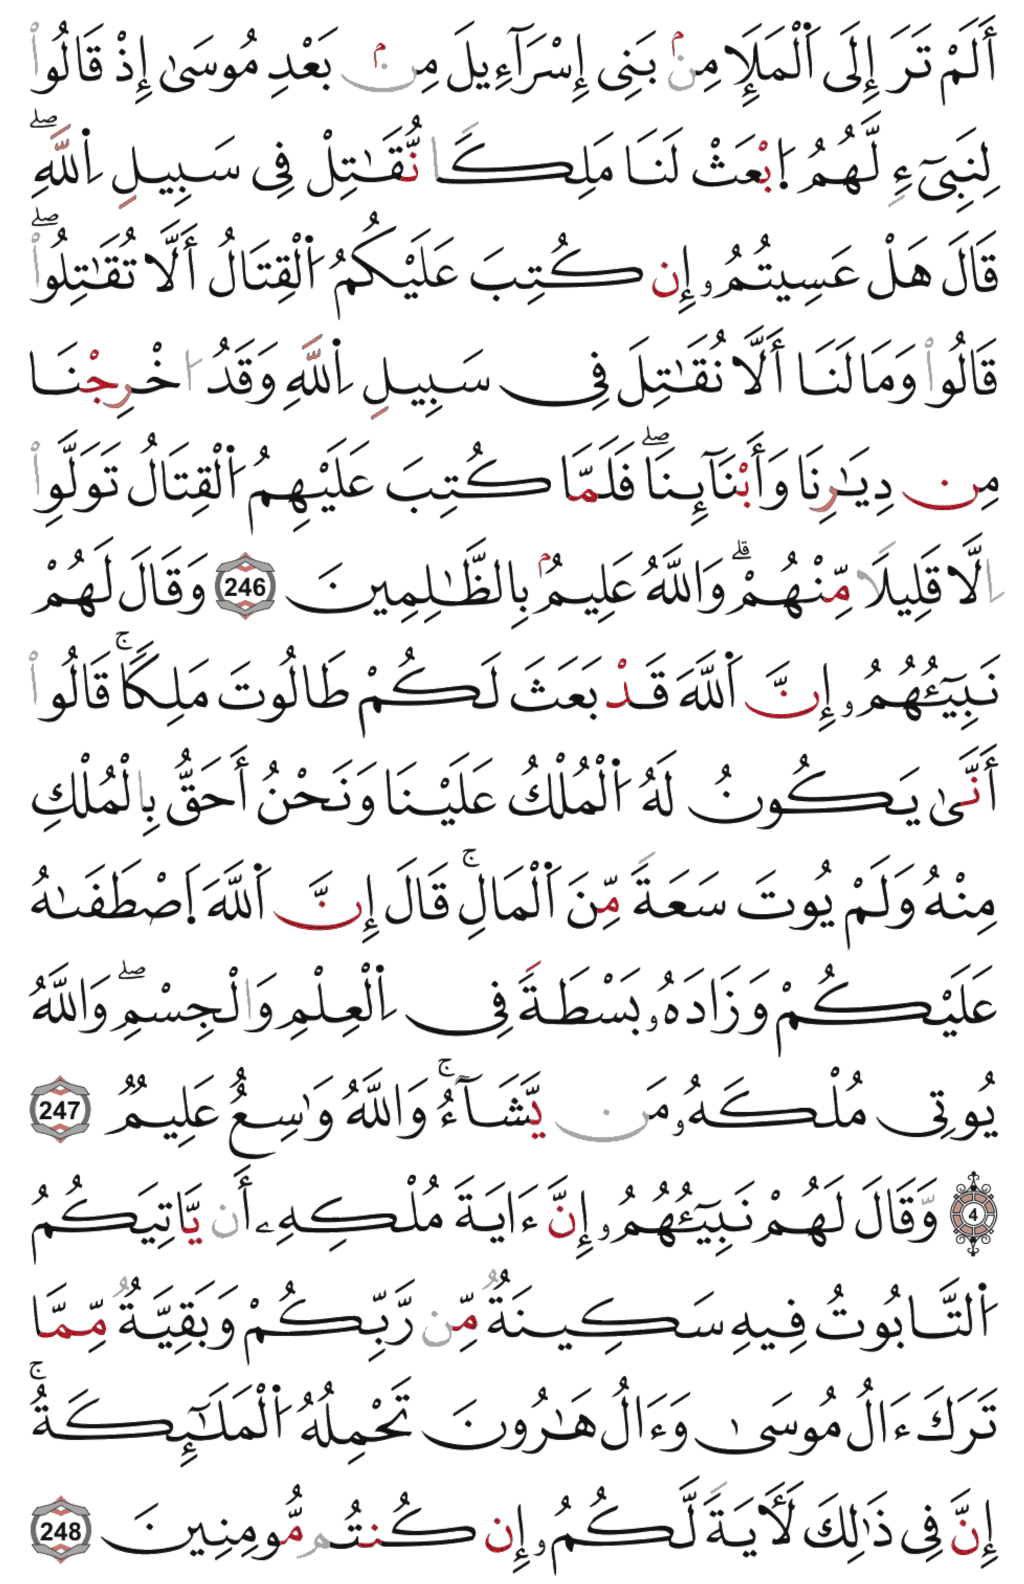 أَلَمْ تَرَ إِلَى اَ۬لْمَلَإِ مِنۢ بَنِے إِسْرَآءِيلَ مِنۢ بَعْدِ مُوسَىٰ إِذْ قَالُواْ
لِنَبِىٓءٍ لَّهُمُ اُ۪بْعَثْ لَنَا مَلِكًا نُّقَٰتِلْ فِى سَبِيلِ اِ۬للَّهِۖ
قَالَ هَلْ عَسِيتُمُۥ إِن كُتِبَ عَلَيْكُمُ اُ۬لْقِتَالُ أَلَّا تُقَٰتِلُواْۖ
قَالُواْ وَمَا لَنَا أَلَّا نُقَٰتِلَ فِى سَبِيلِ اِ۬للَّهِ وَقَدُ ا۟خْرِجْنَا
مِن دِيَٰرِنَا وَأَبْنَآئِنَاۖ فَلَمَّا كُتِبَ عَلَيْهِمُ اُ۬لْقِتَالُ تَوَلَّوِاْ
اِلَّا قَلِيلًا مِّنْهُمْۗ وَاللَّهُ عَلِيمُۢ بِالظَّٰلِمِينَ 246 وَقَالَ لَهُمْ
نَبِيٓـُٔهُمُۥ إِنَّ اَ۬للَّهَ قَدْ بَعَثَ لَكُمْ طَالُوتَ مَلِكًاۚ قَالُواْ
أَنَّىٰ يَكُونُ لَهُ اُ۬لْمُلْكُ عَلَيْنَا وَنَحْنُ أَحَقُّ بِالْمُلْكِ
مِنْهُ وَلَمْ يُوتَ سَعَةً مِّنَ اَ۬لْمَالِۚ قَالَ إِنَّ اَ۬للَّهَ اَ۪صْطَفَىٰهُ
عَلَيْكُمْ وَزَادَهُۥ بَسْطَةً فِى اِ۬لْعِلْمِ وَالْجِسْمِۖ وَاللَّهُ
يُوتِى مُلْكَهُۥ مَن يَّشَآءُۚ وَاللَّهُ وَٰسِعٌ عَلِيمٌ 247
4 وَقَالَ لَهُمْ نَبِيٓـُٔهُمُۥ إِنَّ ءَايَةَ مُلْكِهِۦ أَن يَّاتِيَكُمُ
اُ۬لتَّابُوتُ فِيهِ سَكِينَةٌ مِّن رَّبِّكُمْ وَبَقِيَّةٌ مِّمَّا
تَرَكَ ءَالُ مُوسَىٰ وَءَالُ هَٰرُونَ تَحْمِلُهُ اُ۬لْمَلَٰٓئِكَةُۚ
إِنَّ فِى ذَٰلِكَ لَأٓيَةً لَّكُمُۥ إِن كُنتُم مُّومِنِينَ 248